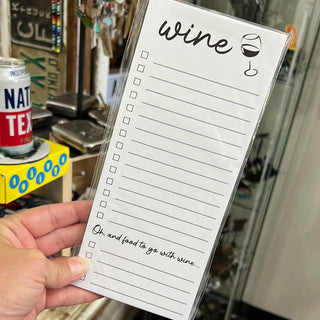 wine
Oh and food to go with wine
NAT
TEX